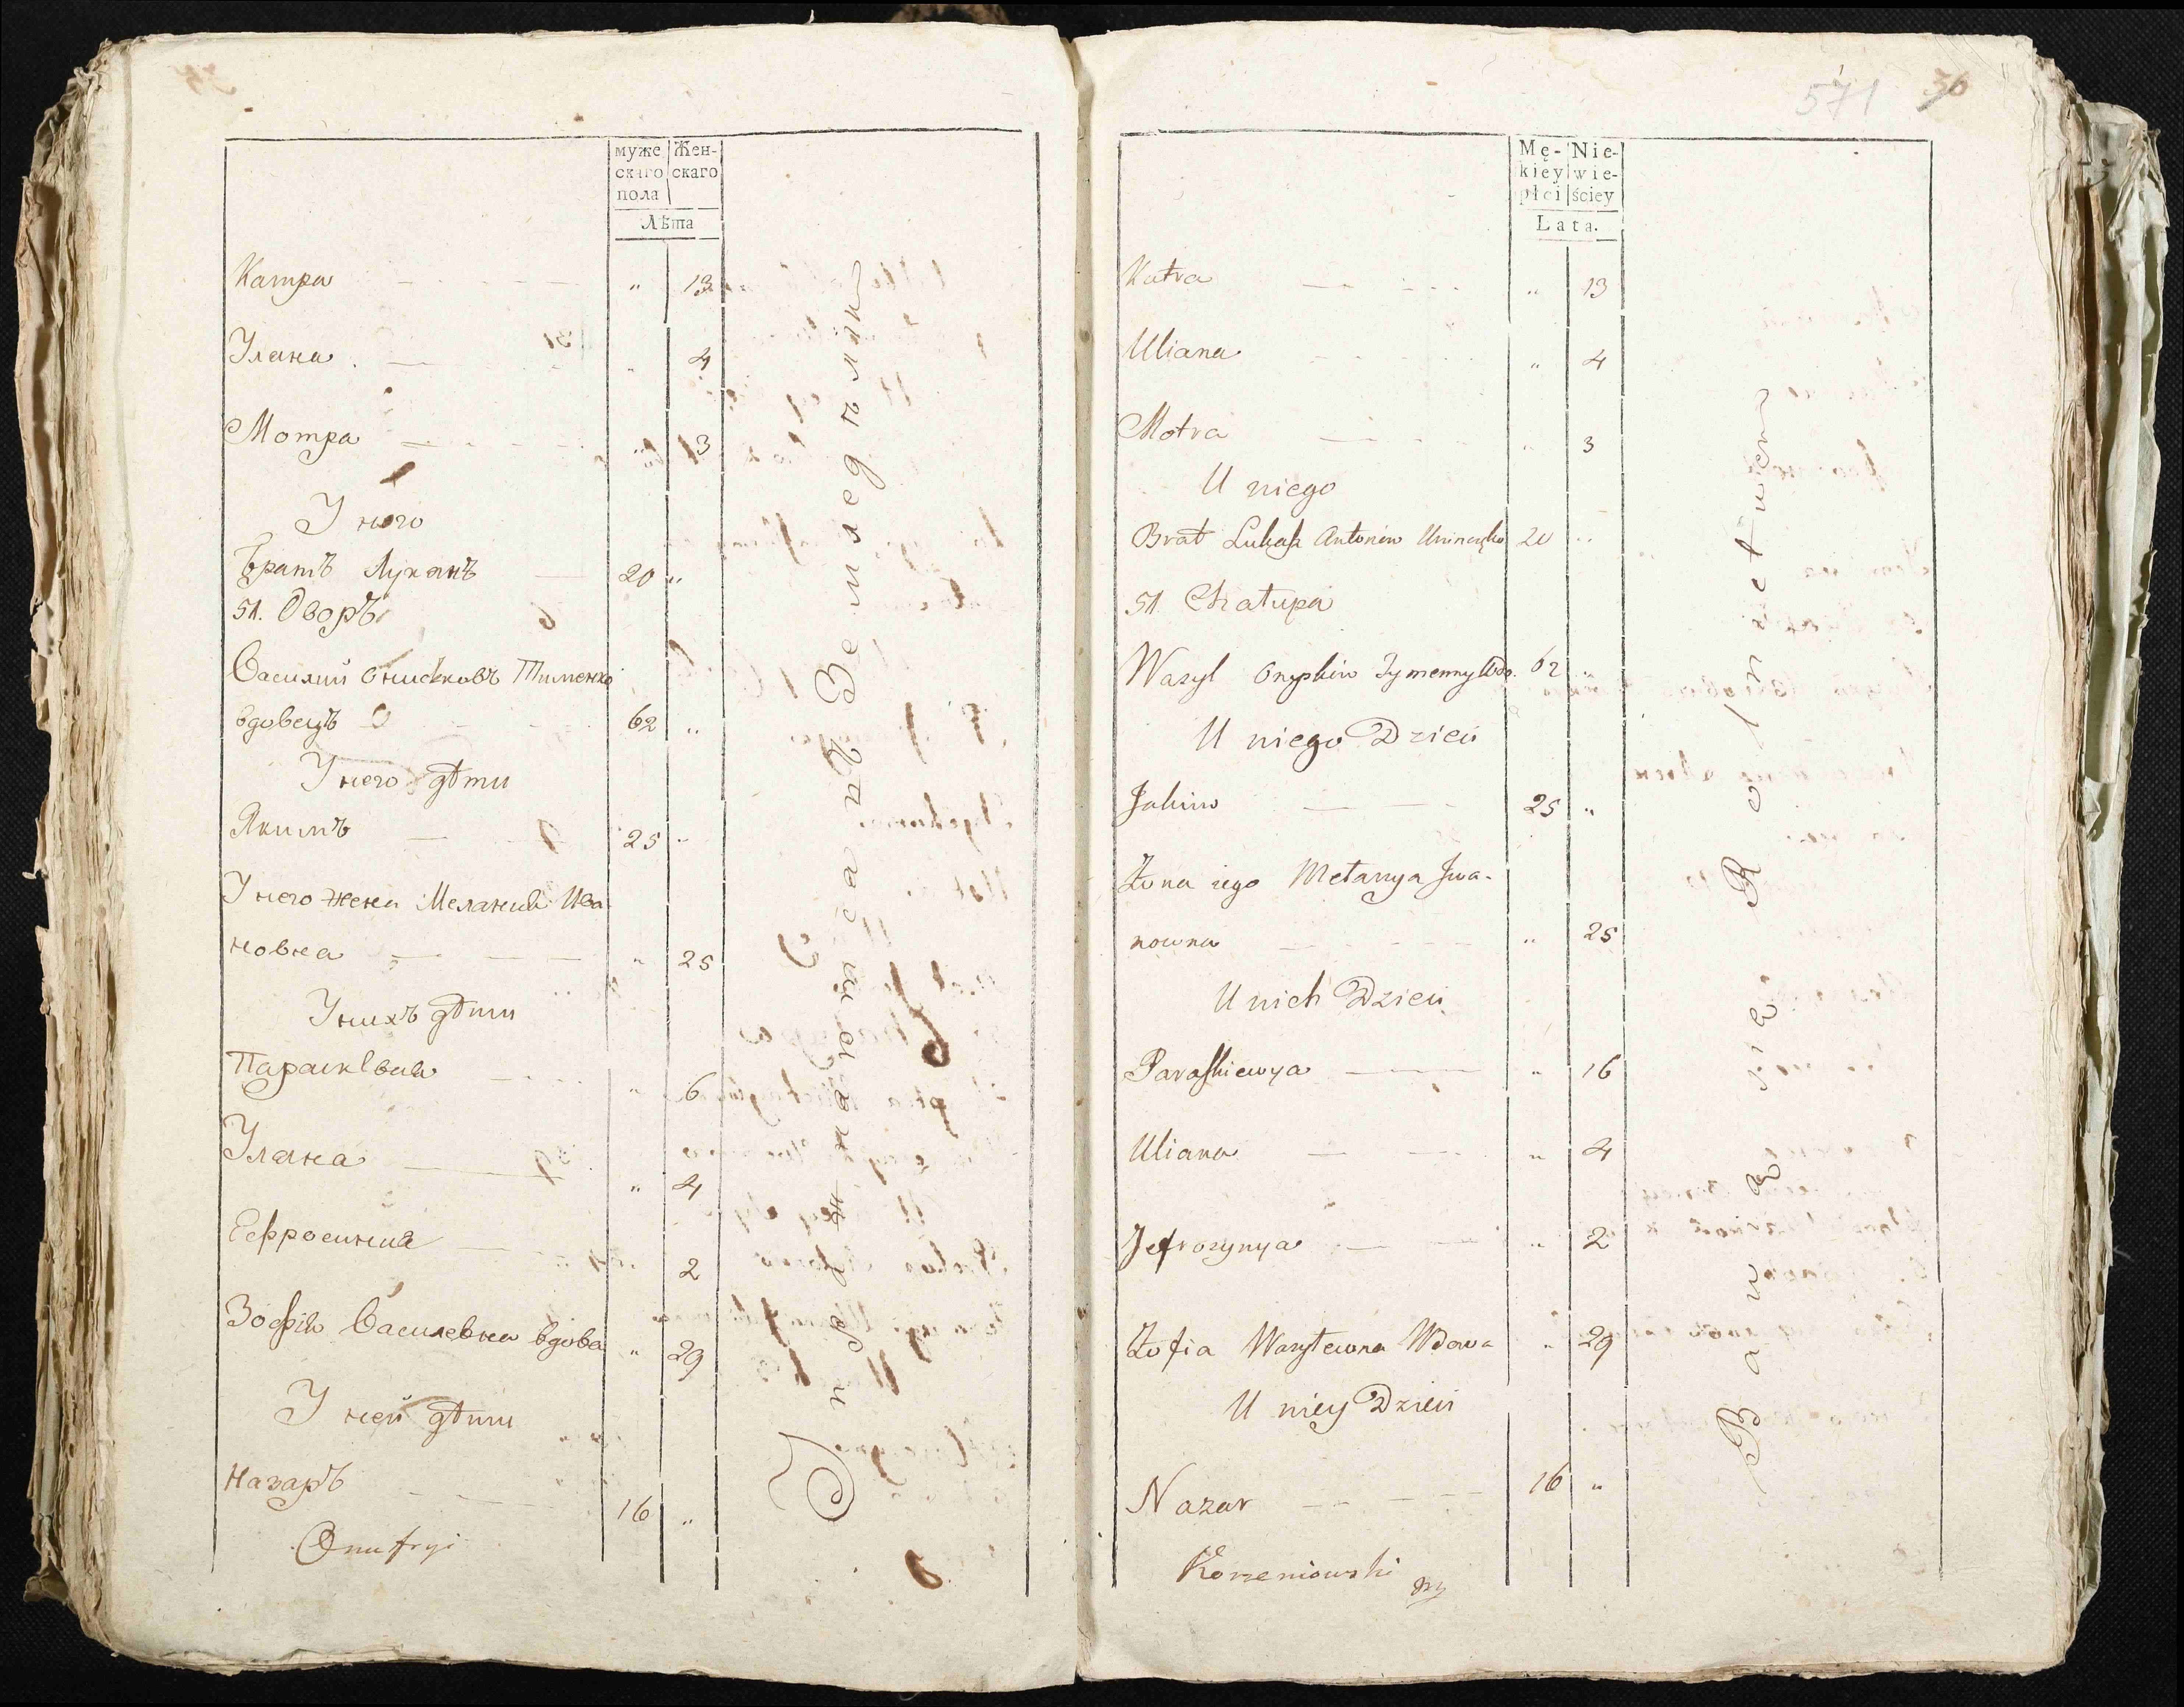 муже Жен-
скаго скаго
пола
Лѣта
Катра — " 13
Улана — " 4
Мотра — " 3
У него
братъ Луканъ — 20 "
51. Дворъ
Василий Онисковъ Тименко
вдовецъ 62 "
У него дѣти
Якимъ — 25 "
У него жена Мелания Ива
новна — " 25
У нихъ дѣти
Параскевия " 6
Улана — " 4
Еефросиния " 2
Зофія Василевна вдова " 29
У ней дѣти
Назаръ 16 "
Onufryi
571 36
Mę- Nie-
kiey wie-
płci ściey
Lata.
Katra — " 13
Uliana " 4
Motra — " 3
U niego
Brat Lukasz Antonów 20 "
51. Chałupa
Wasyl Onyskiw Tymenny Wdo. 62 "
U niego Dzieci
Jakim — 25 "
Żona iego Mełanya Iwa-
nowna — " 25
U nich Dzieci
Paraskiewya — " 16
Uliana — " 4
Jefrozynya — " 2
Zofia Wasylewna Wdowa " 29
U niey Dzieci
Nazar — 16 "
Korzeniowski
Bawią się Rolnictwem